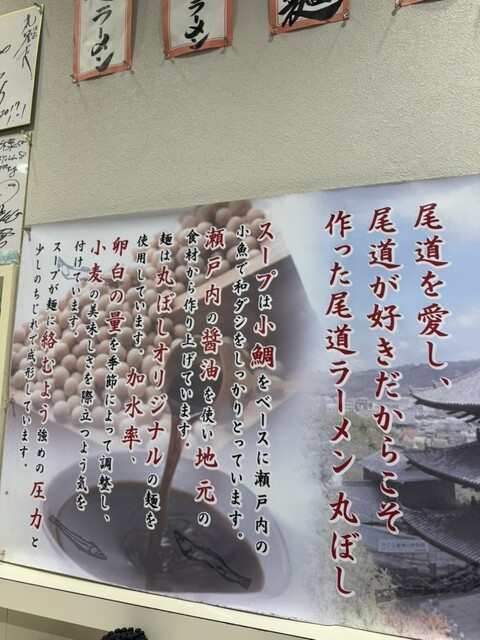 ラーメン
ラーメン
麺
2017
尾道を愛し、
尾道が好きだからこそ
作った尾道ラーメン丸ぼし
スープは小鯛をベースに瀬戸内の
小魚で和ダシをしっかりとっています。
瀬戸内の醤油を使い地元の
食材から作り上げています。
麺は丸ぼしオリジナルの麺を
使用しています。加水率、
卵白の量を季節によって調整し、
小麦の美味しさを際立つよう気を
付けています。
スープが麺に絡むよう強めの圧力と
少しのちぢれで成形しています。